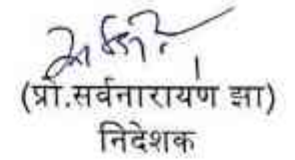 (प्रो.सर्वनारायण झा)
निदेशक